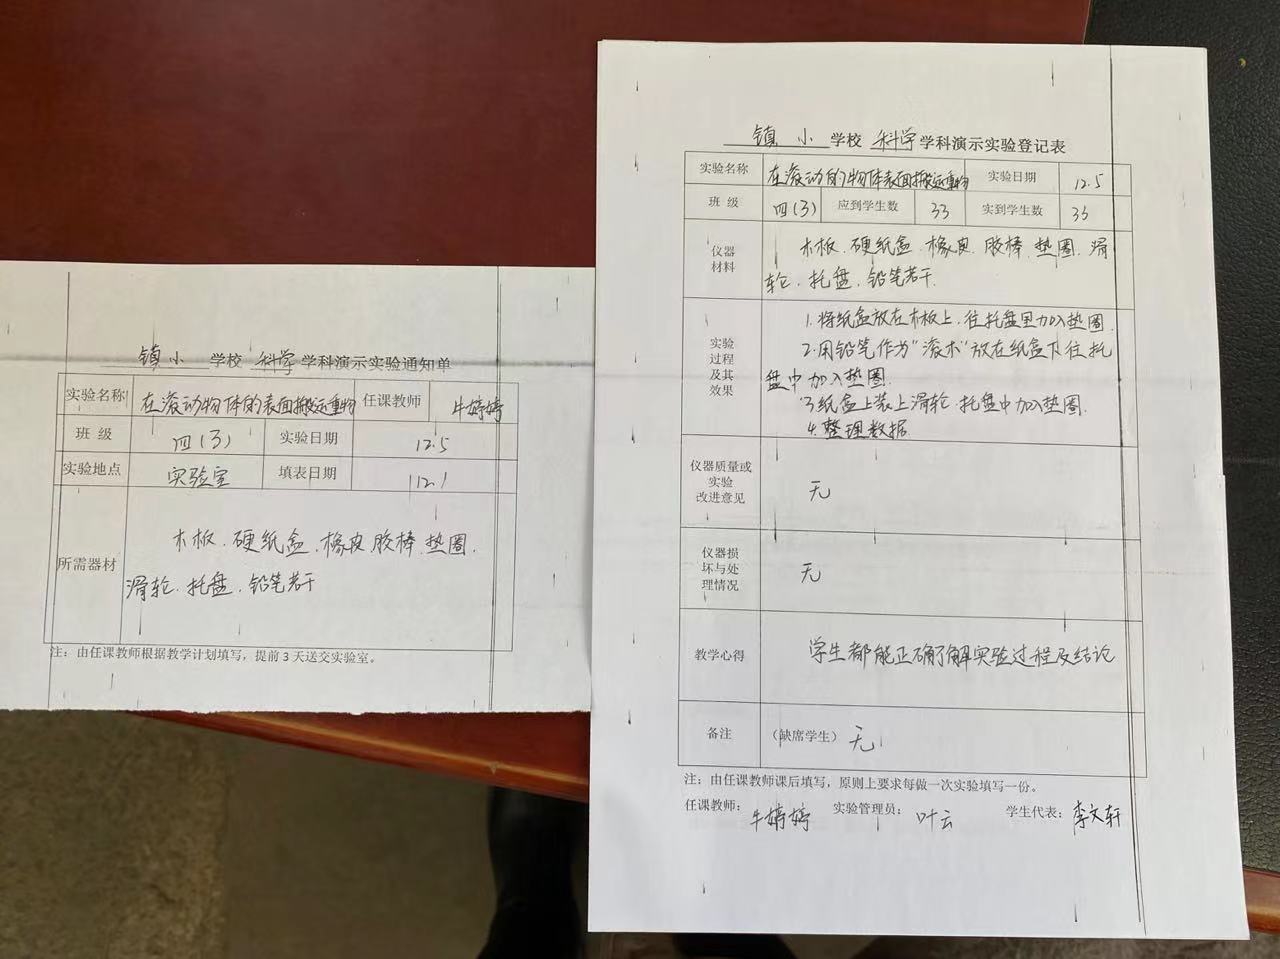 镇小 学校 科学 学科演示实验通知单
实验名称 在滚动物体的表面搬运重物 任课教师 牛婷婷
班 级 四(3) 实验日期 12.5
实验地点 实验室 填表日期 12.1
所需器材
木板、硬纸盒、橡皮、胶棒、垫圈、
滑轮、托盘、铅笔若干
注：由任课教师根据教学计划填写，提前3天送交实验室。
镇小 学校 科学 学科演示实验登记表
实验名称 在滚动的物体表面搬运重物 实验日期 12.5
班 级 四(3) 应到学生数 33 实到学生数 33
仪器
材料
木板、硬纸盒、橡皮、胶棒、垫圈、滑
轮、托盘、铅笔若干.
实验
过程
及其
效果
1.将纸盒放在木板上，往托盘里加入垫圈.
2.用铅笔作为“滚木”放在纸盒下往托
盘中加入垫圈.
3.纸盒上装上滑轮、托盘中加入垫圈.
4.整理数据.
仪器质量或
实验
改进意见
无
仪器损
坏与处
理情况
无
教学心得 学生都能正确了解实验过程及结论
备注 （缺席学生）无
注：由任课教师课后填写，原则上要求每做一次实验填写一份。
任课教师：牛婷婷 实验管理员：叶云 学生代表：李文轩